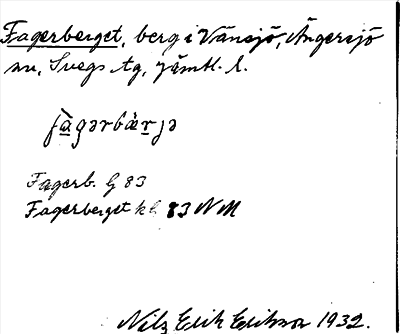 Fagerberget, berg i Vänsjö, Ängersjö
sn, Svegs tg, Jämtl. l.
fàgərbær̲jə
Fagerb. G 83
Fagerberget kl. 83 NM
Nils Erik Erikson 1932.